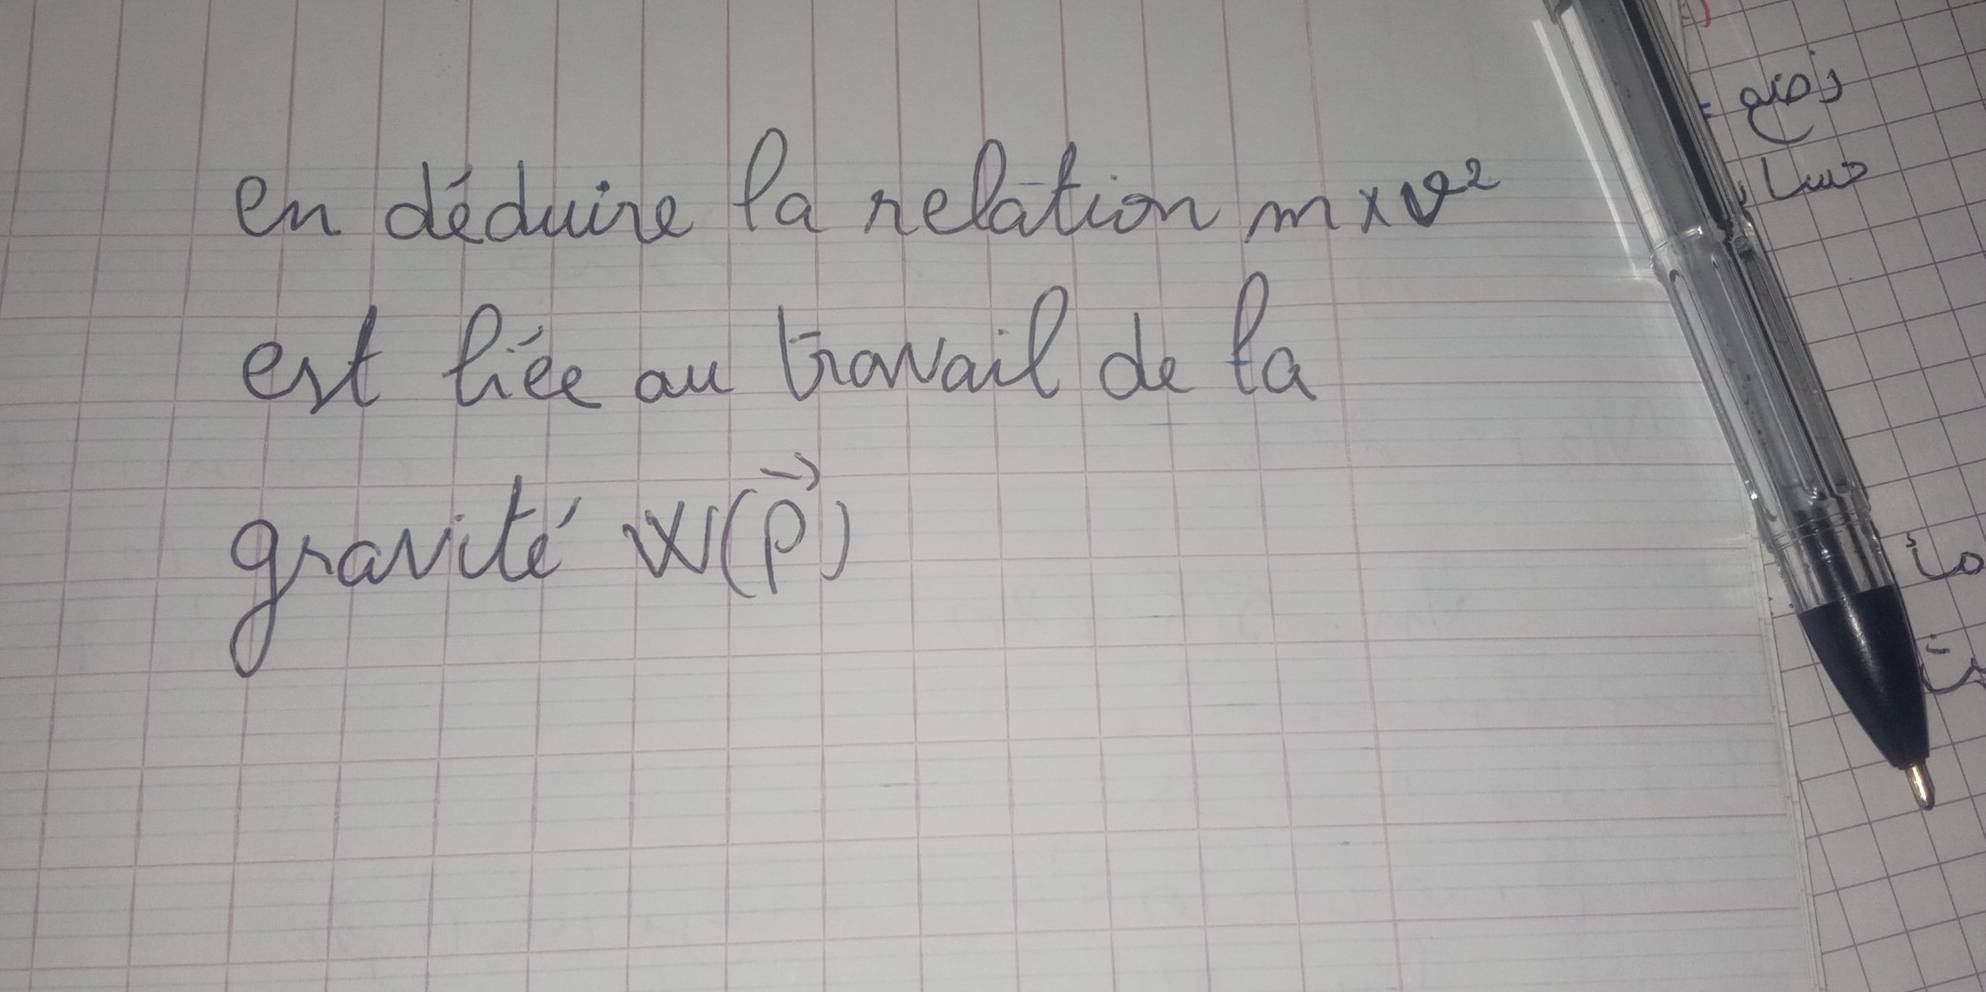 en déduire la relation m x v²
est liée au travail de la
gravité W(P⃗)